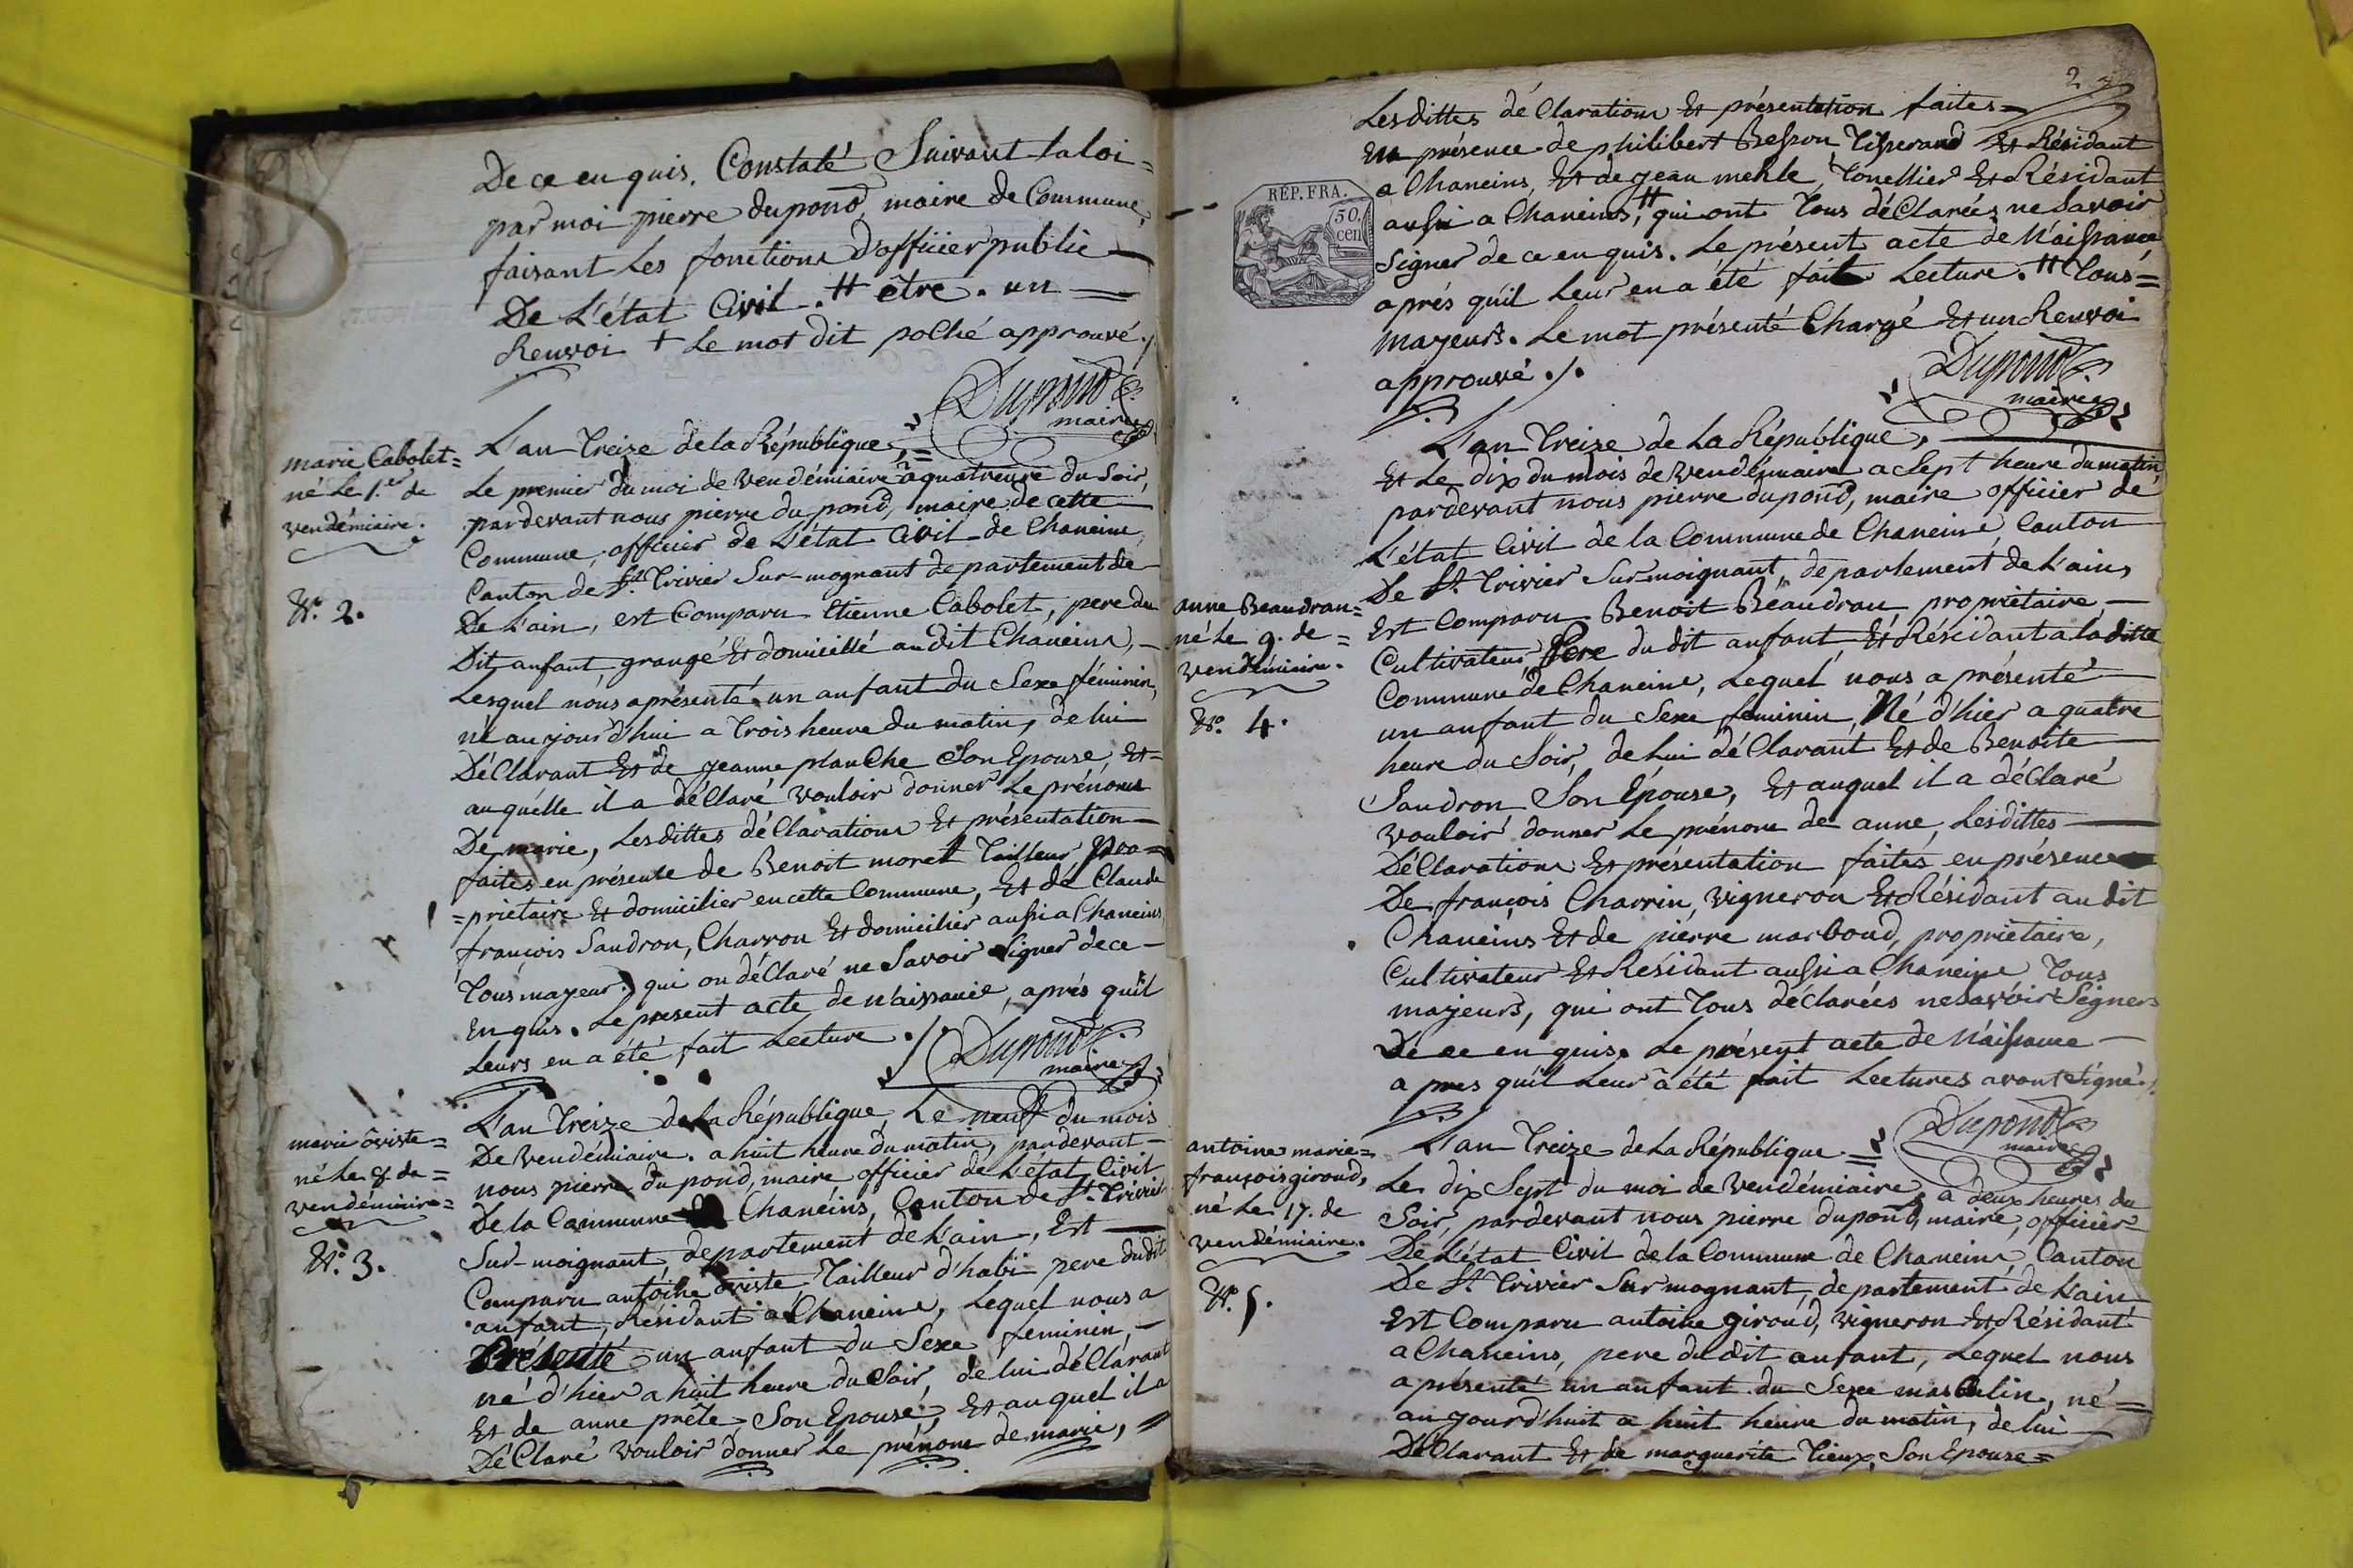 De ce enquis. Constaté Suivant la loi =
par moi pierre dupond, maire de Commune,
faisant Les fonctions D'officier public —
De L'état Civil. # être. un =
Renvoi + Le mot dit poché approuvé ./
Dupond
maire
marie Cabolet =
né Le 1.er de
vendémiaire.
N.o 2.
L'an Treize de la République, =
Le premier du moi de vendémiaire a quatreure du Soir,
pardevant nous pierre du pond, maire de cette
Commune, officier de L'état Civil de Chaneins,
Canton de St. Trivier Sur-mognant departement de
De L'ain, est Comparu Etienne Cabolet, pere du
Dit anfant, grangé Et domicillé audit Chaneins, —
Lesquel nous aprésenté un anfant du Sexe féminin,
né aujourd'hui a Trois heure du matin, de lui
Déclarant Et de jeanne planche Son Epouse, Et =
auquélle il a déClaré vouloir donner Le prénoms
De marie, Lesdittes déClarations Et présentation —
faites en présence de Benoit moret Tailleur, pro =
= priétaire Et domicilier en cette Commune, Et de Claude
françois Sandron, Charron Et domicilier aussi a Chaneins,
Tous mayeur. qui on déClaré ne Savoir Signer de ce —
Enquis. Le présent acte de n'aissance, aprés qu'il
Leurs en a été fait Lecture ./.
Dupond
maire
marie ôviste =
né Le 8. de =
vendémiaire =
N.o 3.
L'an Treize de la République, Le neuf du mois
De vendémiaire. a huit heure du matin, pardevant —
nous pierre du pond, maire officier de L'état Civil
De la Commune Chanéins, Canton de St. Trivier
Sur-moignant, departement de L'ain, Est —
Comparu antoine ôviste Tailleur d'habi pere dudit
anfant, Résidant a Chaneins, Lequel nous a
Présenté un anfant du Sexe feminin, —
né d'hier a huit heure du Soir, de lui déClarant
Et de anne prêle Son Epouse, Et auquel il a
DéClaré vouloir donner Le prénom de marie, =
2
Lesdittes déClarations Et présentation faites =
En présence de philibert Besson, Tisserand Et Résidant
a Chaneins, Et de jean mehle, Tonellier Et Résidant
aussi a Chaneins, # qui ont Tous déClarées ne Savoir
Signer de ce enquis. Le présent acte de Naissance
aprés qu'il Leur en a été fait Lecture. # Tous =
mayeurs. Le mot présenté Chargé Et un Renvoi
approuvé ./.
RÉP. FRA.
50.
cen
Dupond
maire
L'an Treize de La République,
Et Le dix du mois de vendémiaire a Sept heure du matin,
pardevant nous pierre dupond, maire officier de
L'état Civil de la Commune de Chaneins, Canton
De St. Trivier Sur moignant, departement de L'ain,
Est Comparu Benoit Béaudran, propriétaire, —
Cultivateur, Pere du dit anfant, Et Résidant a laditte
Commune de Chaneins, Lequel nous a présenté —
un anfant du Sexe feminin, Né d'hier a quatre
heure du Soir, de lui déClarant Et de Benoite
Sandron Son Epouse, Et auquel il a déClaré
vouloir donner Le prénom de anne, Lesdittes —
DéClarations Et présentation faites en présence
De françois Charrin, vigneron Et Résidant audit
Chanéins Et de pierre marboud, propriétaire,
Cultivateur Et Résidant aussi a Chaneins Tous
majeurs, qui ont Tous déClarées ne Savoir Signers
De ce enquis. Le présent acte de Naissance —
a pres qu'il Leur a été fait Lectures avont Signé ./.
anne Beaudran =
né Le 9. de =
vendémiaire.
N.o 4.
Dupond
maire
antoine marie =
françois giroud,
né Le 17. de
vendémiaire.
N.o 5.
L'an Treize de La République =
Le dix Sept du moi de vendémiaire, a deux heures du
Soir, pardevant nous pierre dupond, maire, officier
De L'état Civil de la Commune de Chaneins, Canton
De St. Trivier Sur mognant, departement de L'ain
Est Comparu antoine giroud, vigneron Et Résidant
a Chaneins, pere du dit anfant, Lequel nous
a présenté un anfant du Sexe masculin, né =
aujourd'huit a huit heure du matin, de lui —
DéClarant Et de marguerite Tieux, Son Epouse =